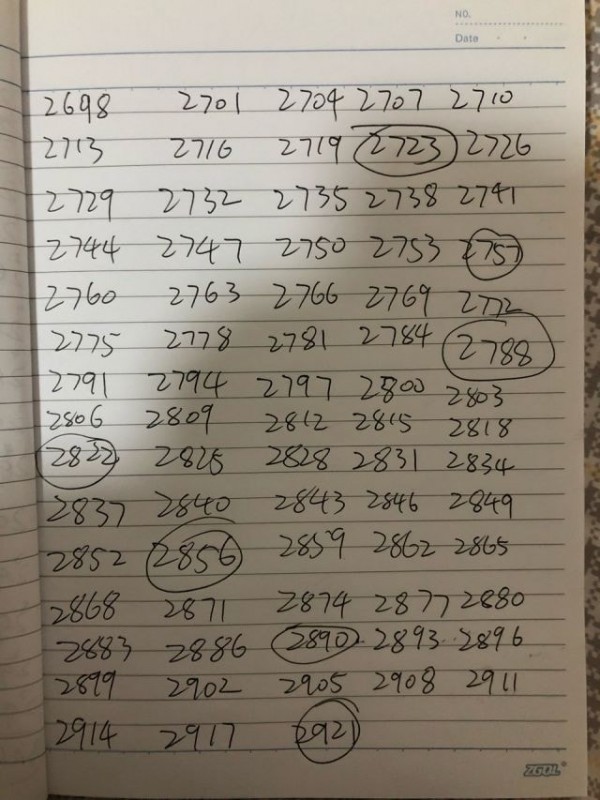 NO.
Date
2698 2701 2704 2707 2710
2713 2716 2719 2723 2726
2729 2732 2735 2738 2741
2744 2747 2750 2753 2757
2760 2763 2766 2769 2772
2775 2778 2781 2784 2788
2791 2794 2797 2800 2803
2806 2809 2812 2815 2818
2822 2825 2828 2831 2834
2837 2840 2843 2846 2849
2852 2856 2859 2862 2865
2868 2871 2874 2877 2880
2883 2886 2890 2893 2896
2899 2902 2905 2908 2911
2914 2917 2921
ZGOL